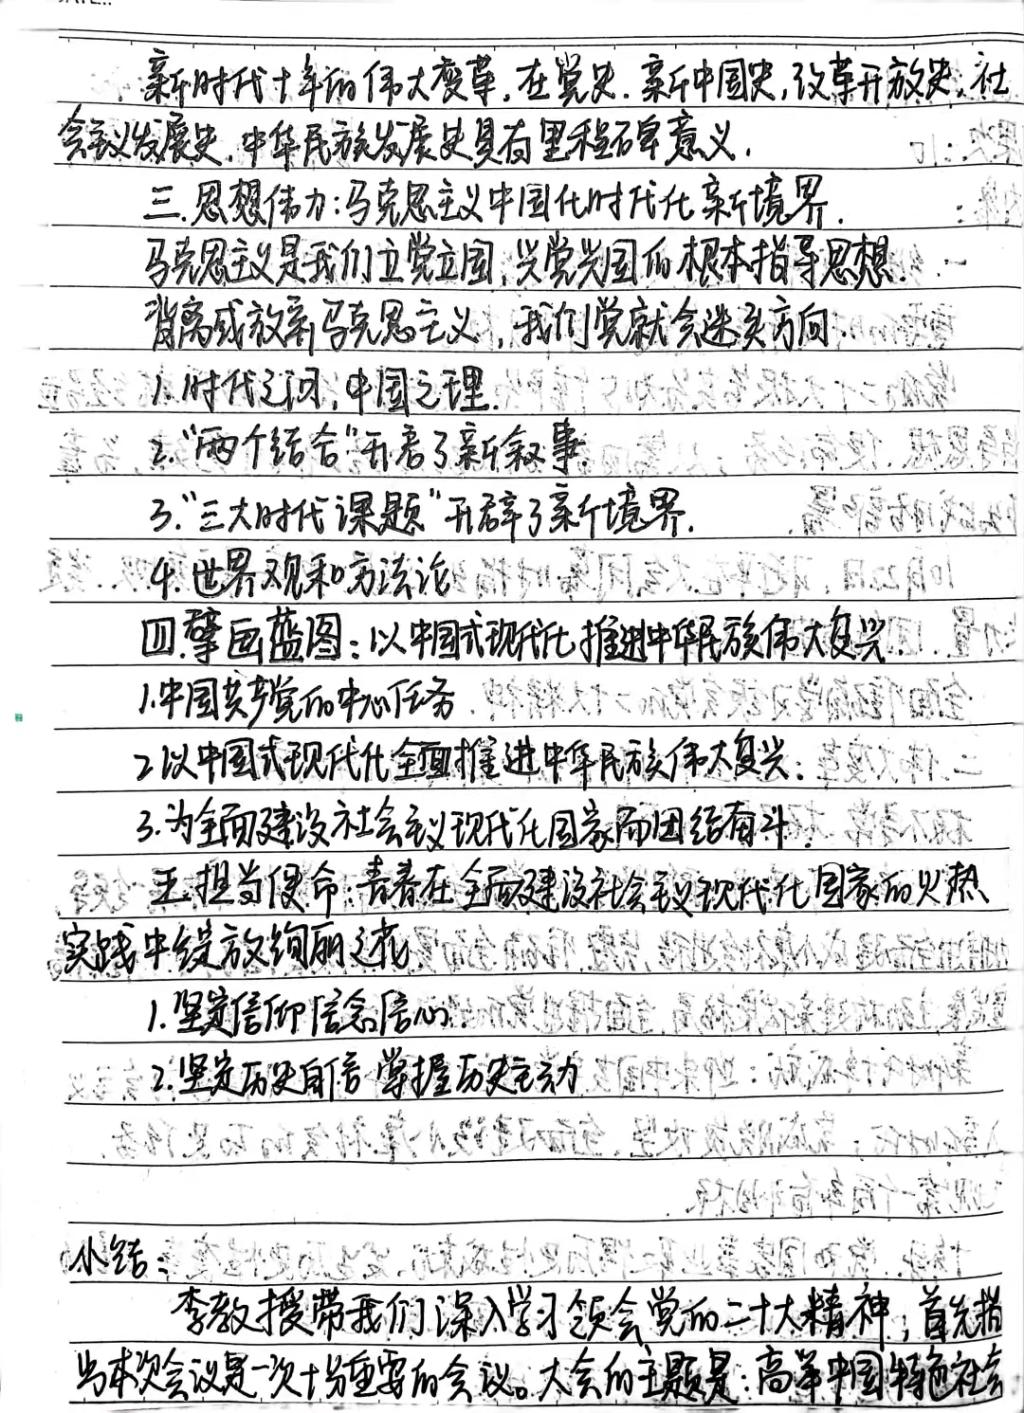 新时代十年的伟大变革,在党史.新中国史,改革开放史,社
会主义发展史.中华民族发展史具有里程碑意义.
三.思想伟力:马克思主义中国化时代化新境界.
马克思主义是我们立党立国,兴党兴国的根本指导思想.
背离或放弃马克思主义,我们党就会迷失方向.
1.时代之问,中国之理.
2."两个结合"开启了新叙事
3."三大时代课题"开辟了新境界.
4.世界观和方法论
四.擘画蓝图:以中国式现代化推进中华民族伟大复兴.
1.中国共产党的中心任务
2以中国式现代化全面推进中华民族伟大复兴.
3.为全面建设社会主义现代化国家而团结奋斗.
五.担当使命:青春在全面建设社会主义现代化国家的火热
实践中绽放绚丽之花
1.坚定信仰信念信心.
2.坚定历史自信 掌握历史主动
小结:
李教授带我们深入学习领会党的二十大精神,首先指
出本次会议是一次十分重要的会议。大会的主题是:高举中国特色社会